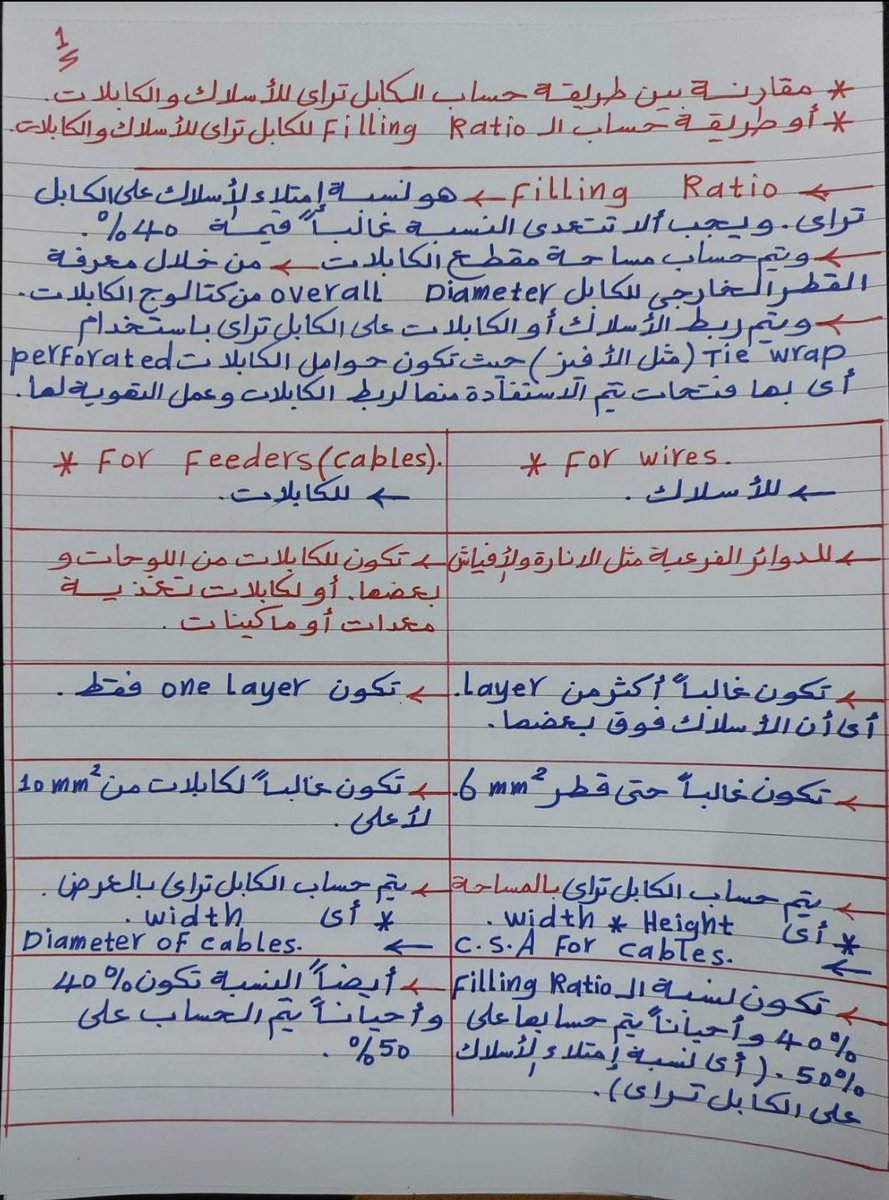 1
* مقارنة بين طريقة حساب الكابل تراى للأسلاك والكابلات.
* أو طريقة حساب الـ Filling Ratio للكابل تراى للأسلاك والكابلات.
← Filling Ratio ← هو نسبة إمتلاء الأسلاك على الكابل
تراى. ويجب ألا تتعدى النسبة غالباً قيمة 40%.
← ويتم حساب مساحة مقطع الكابلات ← من خلال معرفة
القطر الخارجى للكابل overall Diameter من كتالوج الكابلات.
← ويتم ربط الأسلاك أو الكابلات على الكابل تراى باستخدام
Tie wrap (مثل الأفيز) حيث تكون حوامل الكابلات perforated
أى بها فتحات يتم الاستفادة منها لربط الكابلات وعمل التقوية لها.
* For wires.
← للأسلاك.
* For Feeders (cables).
← للكابلات.
← للدوائر الفرعية مثل الانارة والأفياش
← تكون للكابلات من اللوحات و
بعضها. أو لكابلات تغذية
معدات أو ماكينات.
← تكون غالباً أكثر من Layer.
أى أن الأسلاك فوق بعضها.
← تكون one Layer فقط.
← تكون غالباً حتى قطر 6 mm².
← تكون غالباً لكابلات من 10 mm²
لأعلى.
← يتم حساب الكابل تراى بالمساحة
* أى width * Height.
← C.S.A For cables.
← يتم حساب الكابل تراى بالعرض.
* أى width.
← Diameter of cables.
← تكون نسبة الـ Filling Ratio
40% وأحياناً يتم حسابها على
50%. (أى نسبة إمتلاء الأسلاك
على الكابل تراى).
← أيضاً النسبة تكون 40%
وأحياناً يتم الحساب على
50%.